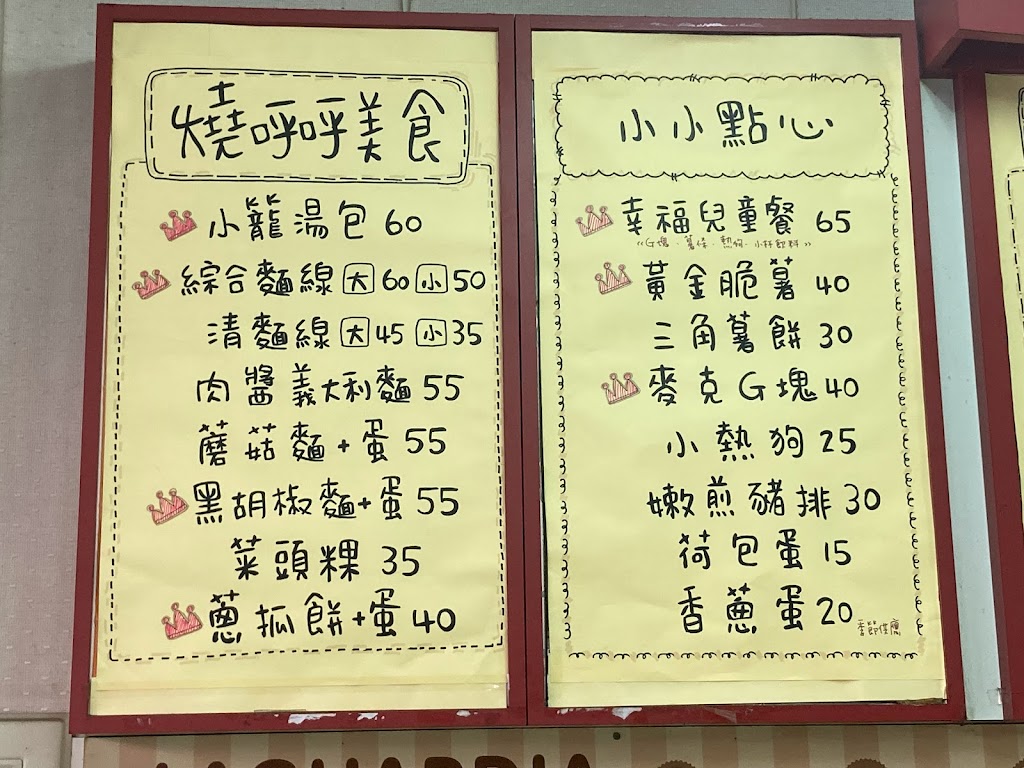 燒呼呼美食
小籠湯包 60
綜合麵線 大 60 小 50
清麵線 大 45 小 35
肉醬義大利麵 55
蘑菇麵+蛋 55
黑胡椒麵+蛋 55
菜頭粿 35
蔥抓餅+蛋 40
小小點心
幸福兒童餐 65
《G塊.薯條.熱狗.小杯飲料》
黃金脆薯 40
三角薯餅 30
麥克G塊 40
小熱狗 25
嫩煎豬排 30
荷包蛋 15
香蔥蛋 20
季節供應